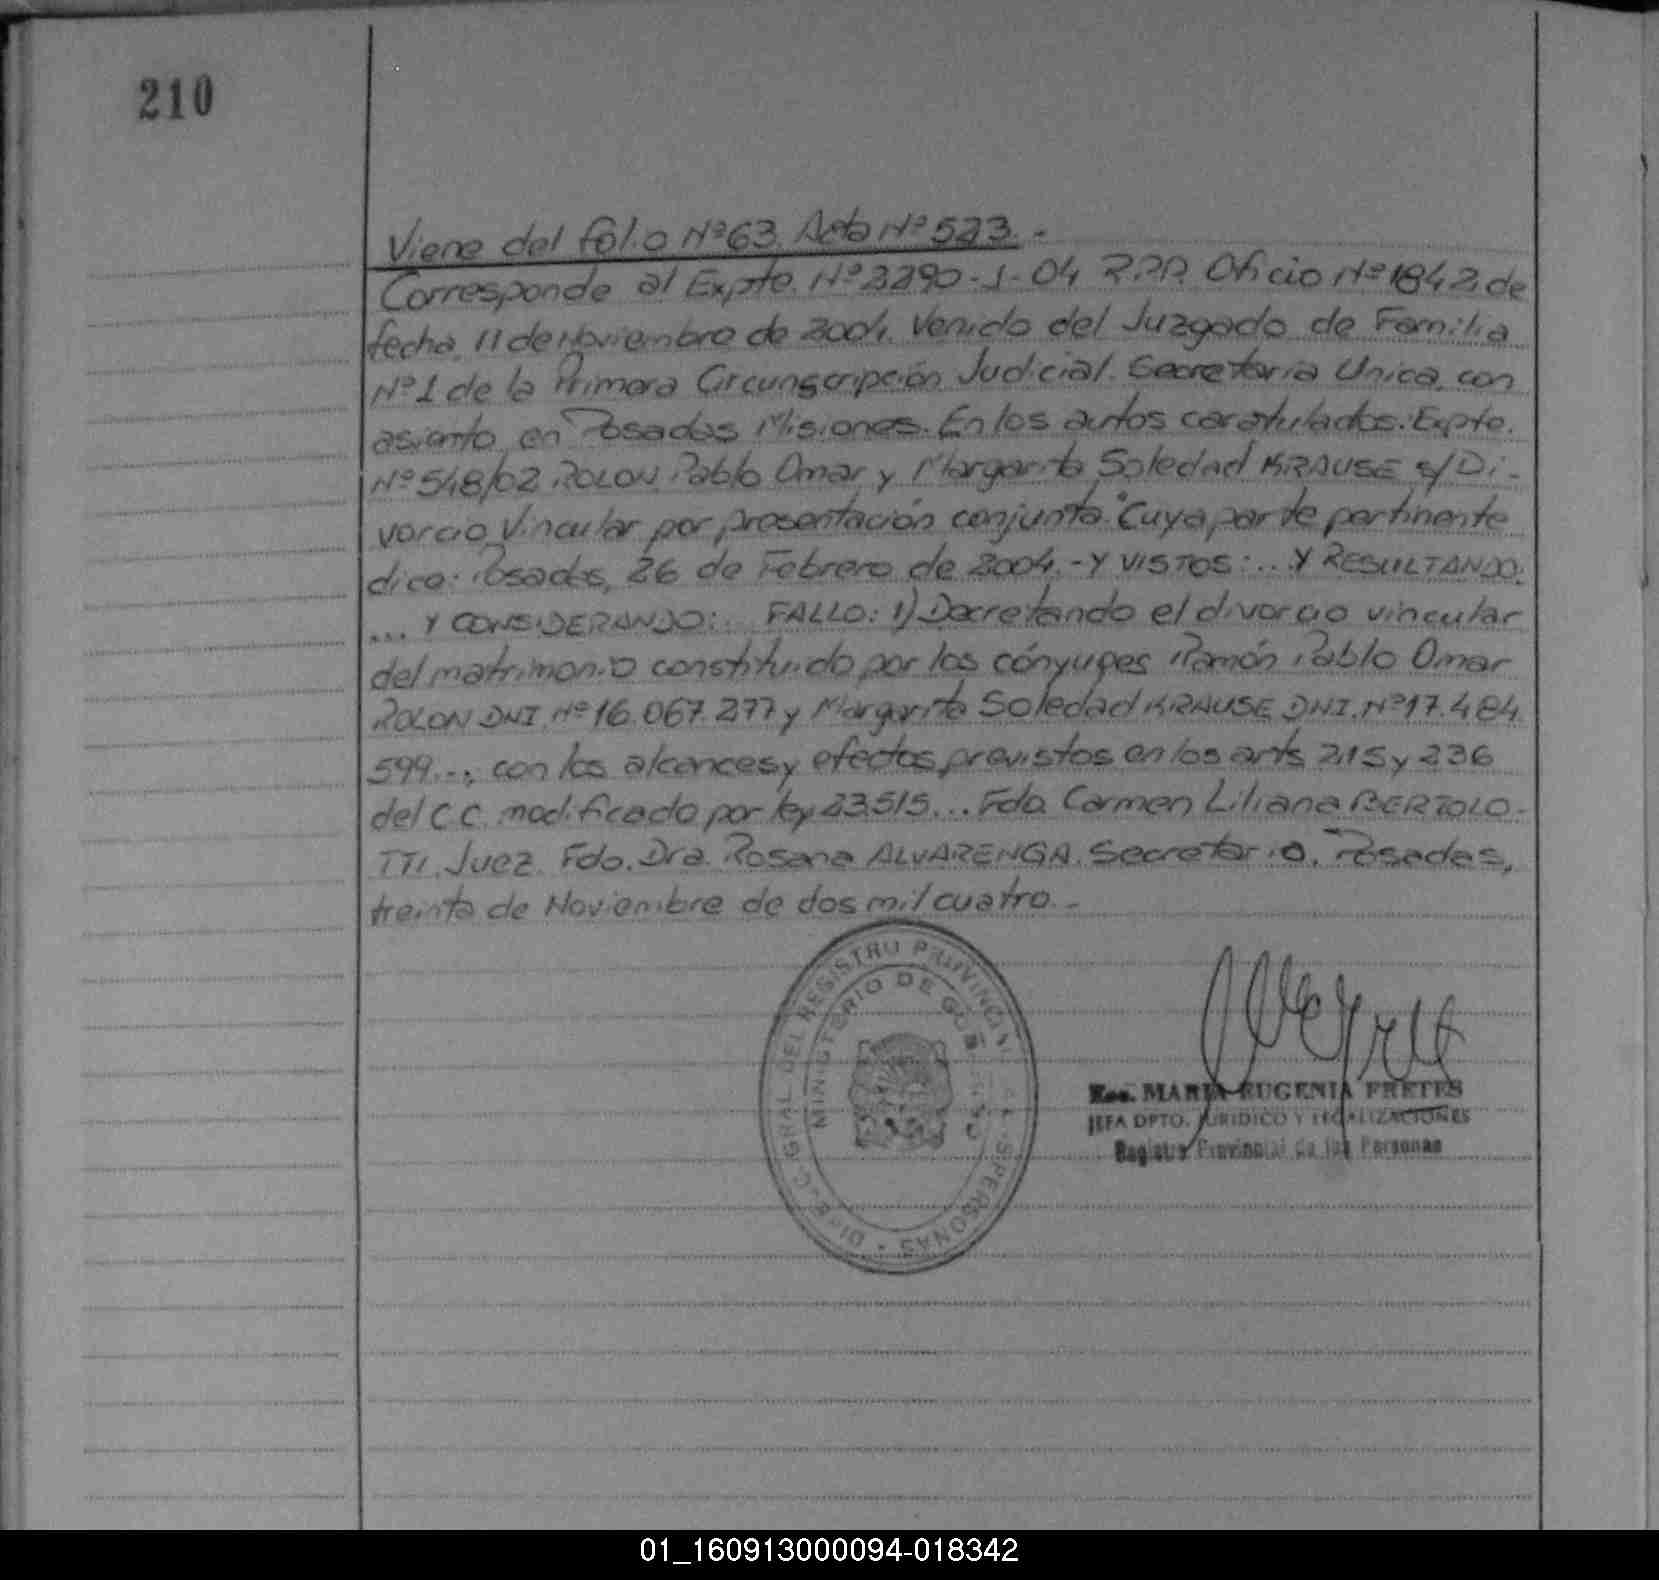 210
Viene del folio Nº 63. Acta Nº 523.-
Corresponde al Expte. Nº 3290-J-04 R.P.P. Oficio Nº 1842, de
fecha 11 de Noviembre de 2004. Venido del Juzgado de Familia
Nº 1 de la Primera Circunscripción Judicial. Secretaría Unica, con
asiento en Posadas Misiones. En los autos caratulados: Expte.
Nº 548/02 ROLON Pablo Omar y Margarita Soledad KRAUSE s/ Di-
vorcio Vincular por presentación conjunta." Cuya parte pertinente
dice: Posadas, 26 de Febrero de 2004.- Y VISTOS:... Y RESULTANDO:
... Y CONSIDERANDO:... FALLO: 1) Decretando el divorcio vincular
del matrimonio constituido por los cónyuges Ramón Pablo Omar
ROLON DNI. Nº 16.067.277 y Margarita Soledad KRAUSE DNI. Nº 17.484
599..., con los alcances y efectos previstos en los arts 215 y 236
del C.C. modificado por ley 23.515... Fdo. Carmen Liliana BERTOLO-
TTI. Juez. Fdo. Dra. Rosana ALVARENGA. Secretario. Posadas,
treinta de Noviembre de dos mil cuatro.-
GRAL. DEL REGISTRO PROVINCIAL PERSONAS
MINISTERIO DE GOB
MARIA EUGENIA FRETES
JEFA DPTO. JURIDICO Y LEGALIZACIONES
Registro Provincial de las Personas
01_160913000094-018342